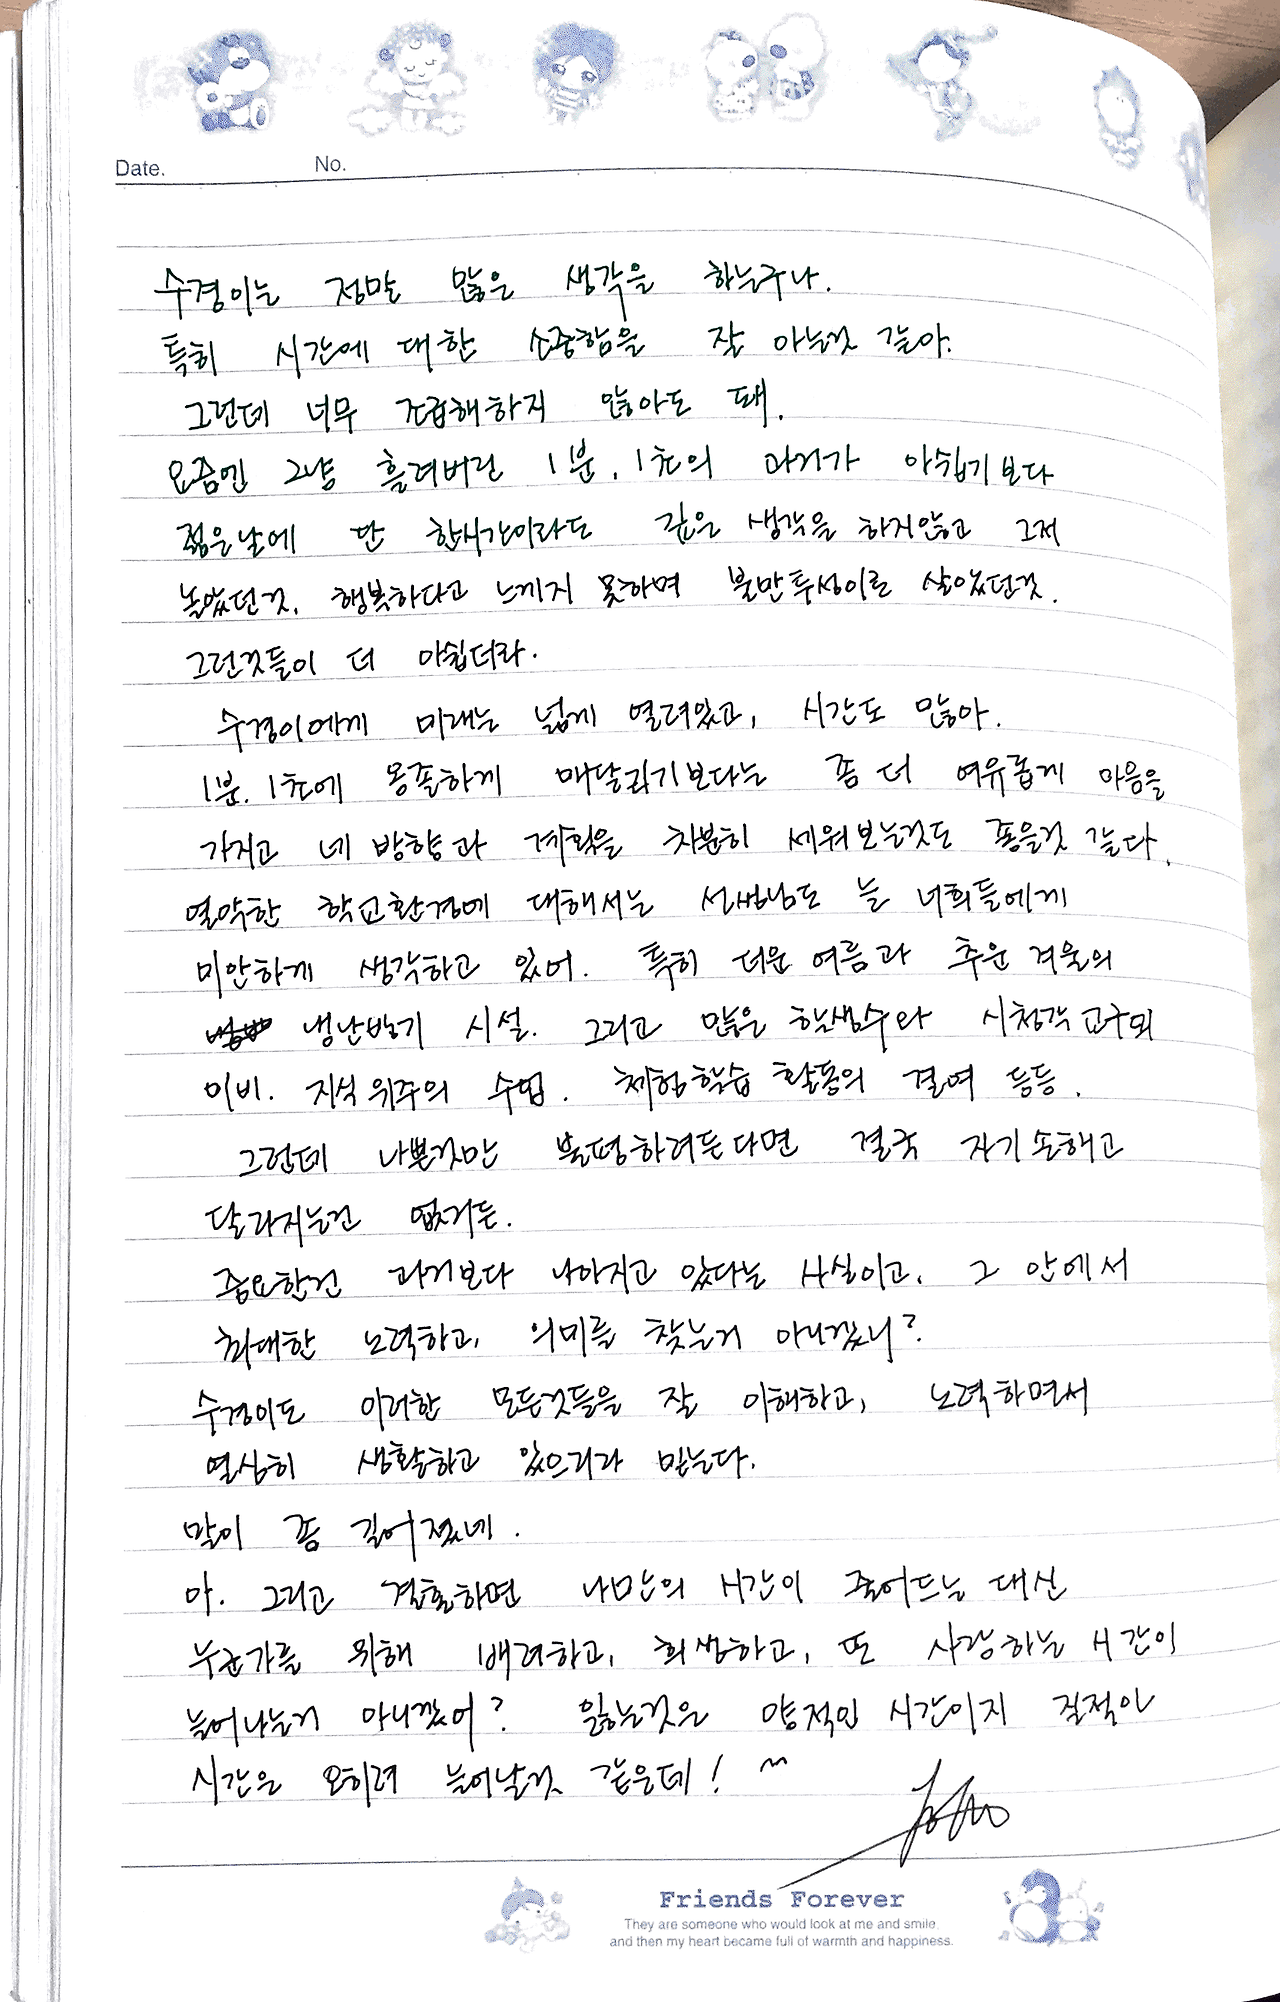 Date. No.
수경이는 정말 많은 생각을 하는구나.
특히 시간에 대한 소중함을 잘 아는것 같아.
그런데 너무 조급해하지 않아도 돼.
요즘엔 그냥 흘려버린 1분, 1초의 과거가 아쉽기보다
젊은날에 단 한시간이라도 깊은 생각을 하지않고 그저
놀았던것, 행복하다고 느끼지 못하며 불만투성이로 살았던것.
그런것들이 더 아쉽더라.
수경이에게 미래는 넓게 열려있고, 시간도 많아.
1분. 1초에 옹졸하게 매달리기보다는 좀 더 여유롭게 마음을
가지고 네 방향과 계획을 차분히 세워보는것도 좋을것 같다.
열악한 학교환경에 대해서는 선생님도 늘 너희들에게
미안하게 생각하고 있어. 특히 더운 여름과 추운 겨울의
냉난방기 시설. 그리고 많은 학생수와 시청각교구의
미비. 지식위주의 수업. 체험학습 활동의 결여 등등.
그런데 나쁜것만 불평하려든다면 결국 자기손해고
달라지는건 없거든.
중요한건 과거보다 나아지고 있다는 사실이고, 그 안에서
최대한 노력하고, 의미를 찾는거 아니겠니?
수경이도 이러한 모든것들을 잘 이해하고, 노력하면서
열심히 생활하고 있으리라 믿는다.
말이 좀 길어졌네.
아. 그리고 결혼하면 나만의 시간이 줄어드는 대신
누군가를 위해 배려하고, 희생하고, 또 사랑하는 시간이
늘어나는거 아니겠어? 잃는것은 양적인 시간이지 질적인
시간은 오히려 늘어날것 같은데! ~
Friends Forever
They are someone who would look at me and smile,
and then my heart became full of warmth and happiness.